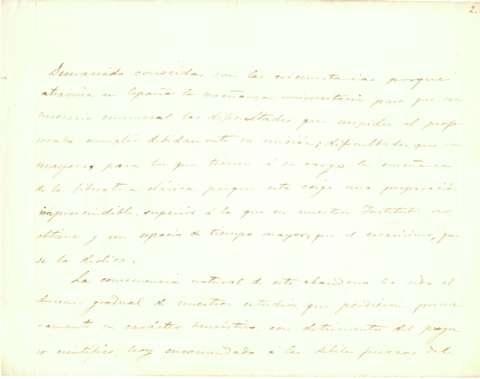 2.
Demasiado conocidas son las circunstancias porque
atraviesa en España la enseñanza universitaria para que sea
necesario enumerar las dificultades que impiden al profe
sorado cumplir debidamente su misión; dificultades que son
mayores, para los que tienen á su cargo la enseñanza
de la literatura clásica porque esta exige una preparación
imprescindible, superior á la que en nuestros Institutos se
obtiene y un espacio de tiempo mayor, que el escasísimo, que
se la dedica.
La consecuencia natural de este abandono ha sido el
descenso gradual de nuestros estudios que perdieron
su carácter con detrimento del
científico, hoy encomendado a las débiles fuerzas del